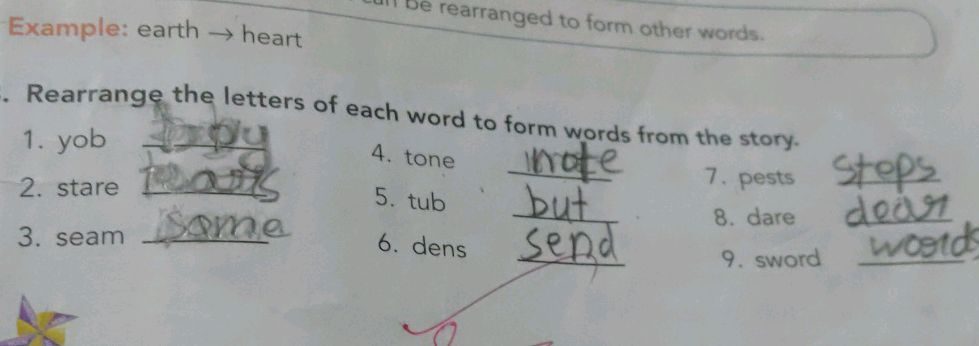 be rearranged to form other words.
Example: earth → heart
Rearrange the letters of each word to form words from the story.
1. yob boy
2. stare tears
3. seam same
4. tone note
5. tub but
6. dens send
7. pests steps
8. dare dear
9. sword words